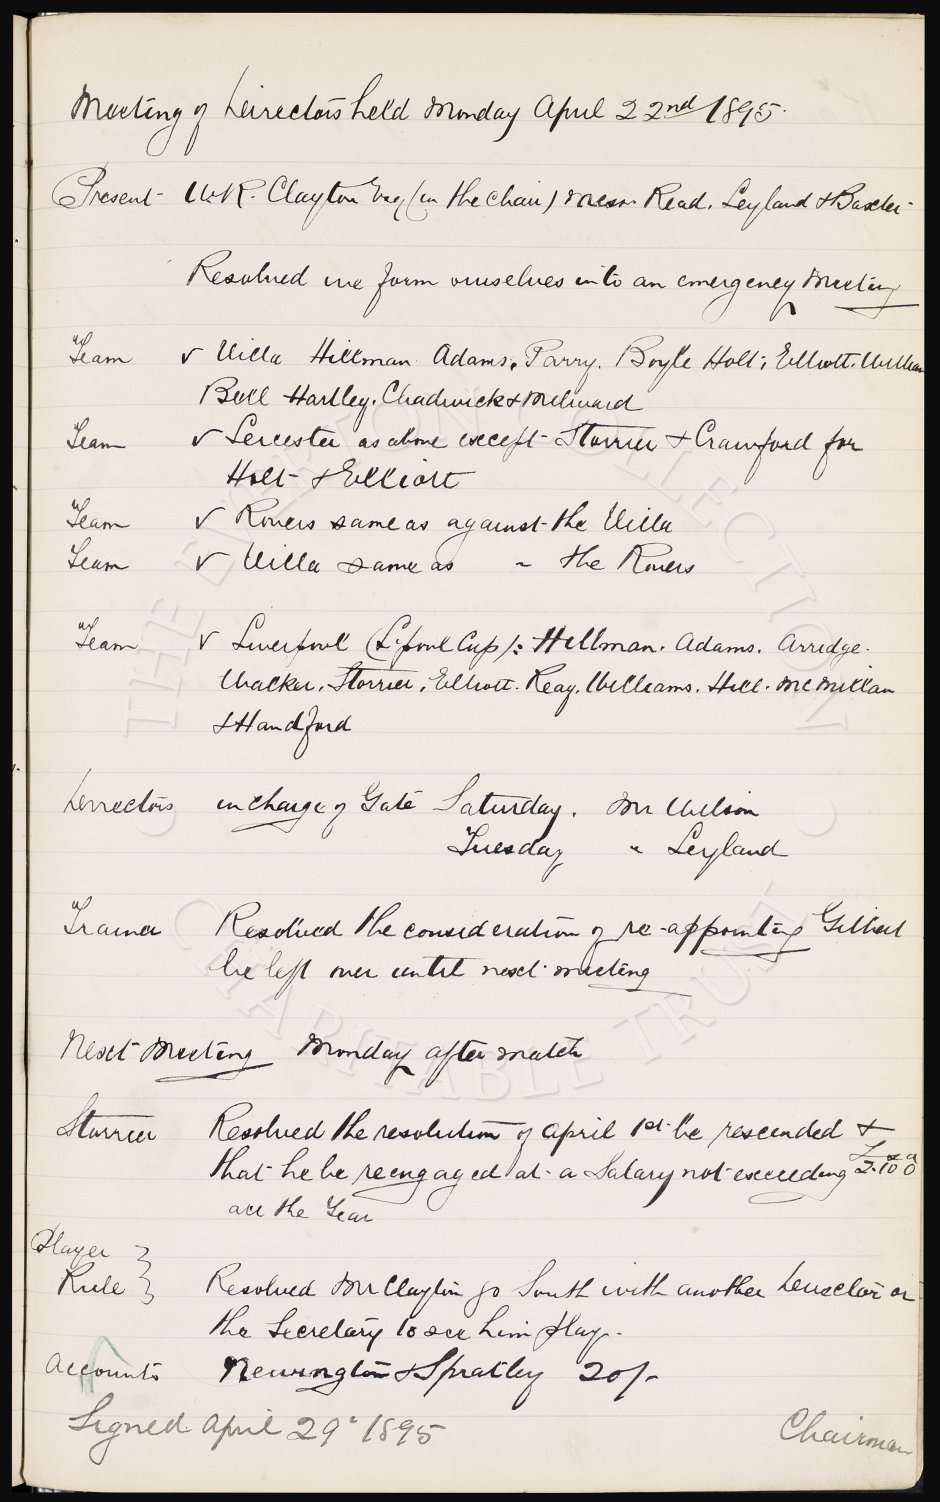 Meeting of Directors held Monday April 22nd 1895.
Present W.R. Clayton Esq (in the chair) Messrs Read, Leyland & Baxter
Resolved we form ourselves into an emergency Meeting
Team v Villa Hillman Adams, Parry. Boyle Holt, Elliott. William
Bell Hartley. Chadwick & Milward
Team v Leicester as above except Storrier & Crawford for
Holt & Elliott
Team v Rovers same as against the Villa
Team v Villa same as " the Rovers
Team v Liverpool (L'pool Cup): Hillman. Adams. Arridge.
Walker. Storrier, Elliott. Reay. Williams. Hill. McMillan
& Handford
Directors in charge of Gate Saturday. Mr Wilson
Tuesday " Leyland
Trainer Resolved the consideration of re-appointing Gilbert
be left over until next meeting
Next Meeting Monday after match
Storrier Resolved the resolution of april 1st be rescinded &
that he be reengaged at a Salary not exceeding £2.10.0
all the Year
Player }
Rule } Resolved Mr Clayton go South with another Director or
the Secretary to see him play.
Accounts Newington & Spratley 20/-
Signed April 29th 1895 Chairman
THE EVERTON COLLECTION
CHARITABLE TRUST